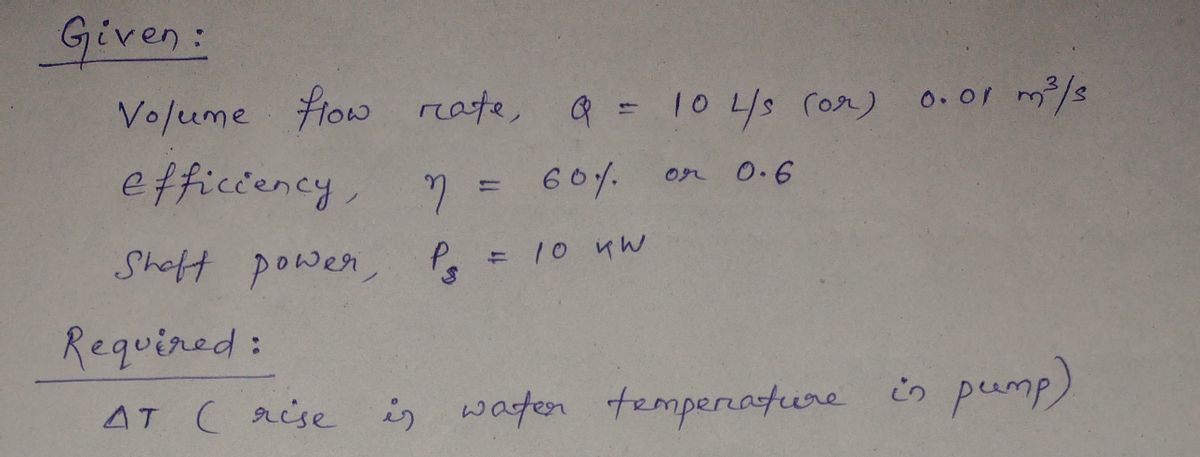 Given :
Volume flow rate, Q = 10 L/s (or) 0.01 m³/s
efficiency, η = 60% or 0.6
Shaft power, Ps = 10 kW
Required :
ΔT ( rise in water temperature in pump)